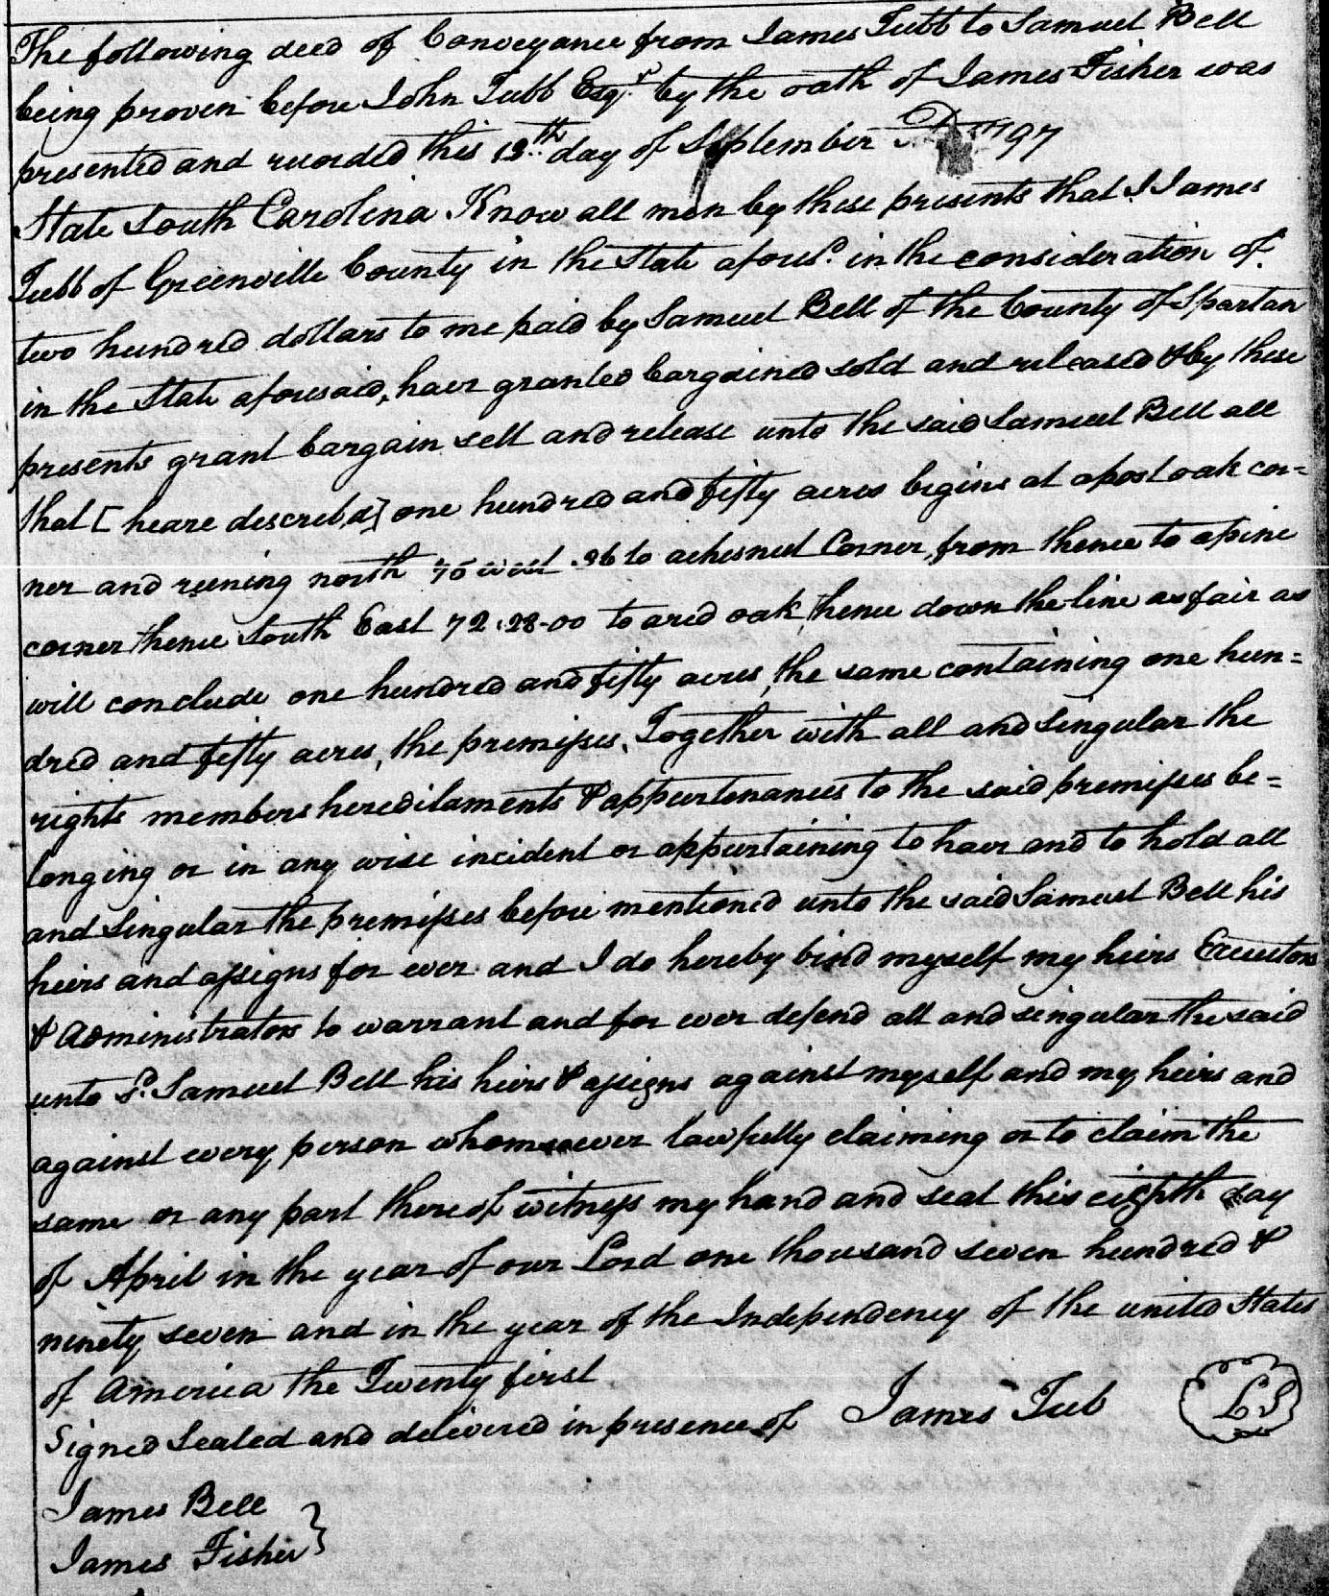 The following deed of Conveyance from James Tubb to Samuel Bell
being proven before John Tubb Esqr. by the oath of James Fisher was
presented and recorded this 13th day of September 1797
State South Carolina Know all men by these presents that I James
Tubb of Greenville County in the State aforesd. in the consideration of
two hundred dollars to me paid by Samuel Bell of the County of Spartan
in the State aforesaid, have granted bargained sold and released & by these
presents grant bargain sell and release unto the said Samuel Bell all
that [heare descrebd] one hundred and fifty acres begins at a post oak cor=
ner and runing north 75 west 36 to a chesnut Corner, from thence to a pine
corner thence South East 72.28-00 to a red oak, thence down the line as fair as
will conclude one hundred and fifty acres, the same containing one hun=
dred and fifty acres, the premises, Together with all and Singular the
rights members hereditaments & appurtenances to the said premises be=
longing or in any wise incident or appurtaining to have and to hold all
and Singular the premises before mentioned unto the said Samuel Bell his
heirs and assigns for ever and I do hereby bind myself my heirs Executors
& Administrators to warrant and for ever defend all and singular the said
unto sd. Samuel Bell his heirs & assigns against myself and my heirs and
against every person whomsoever lawfully claiming or to claim the
same or any part thereof witness my hand and seal this eighth day
of April in the year of our Lord one thousand seven hundred &
ninety seven and in the year of the Independency of the united States
of America the Twenty first
Signed Sealed and delivered in presence of James Tub LS
James Bell
James Fisher